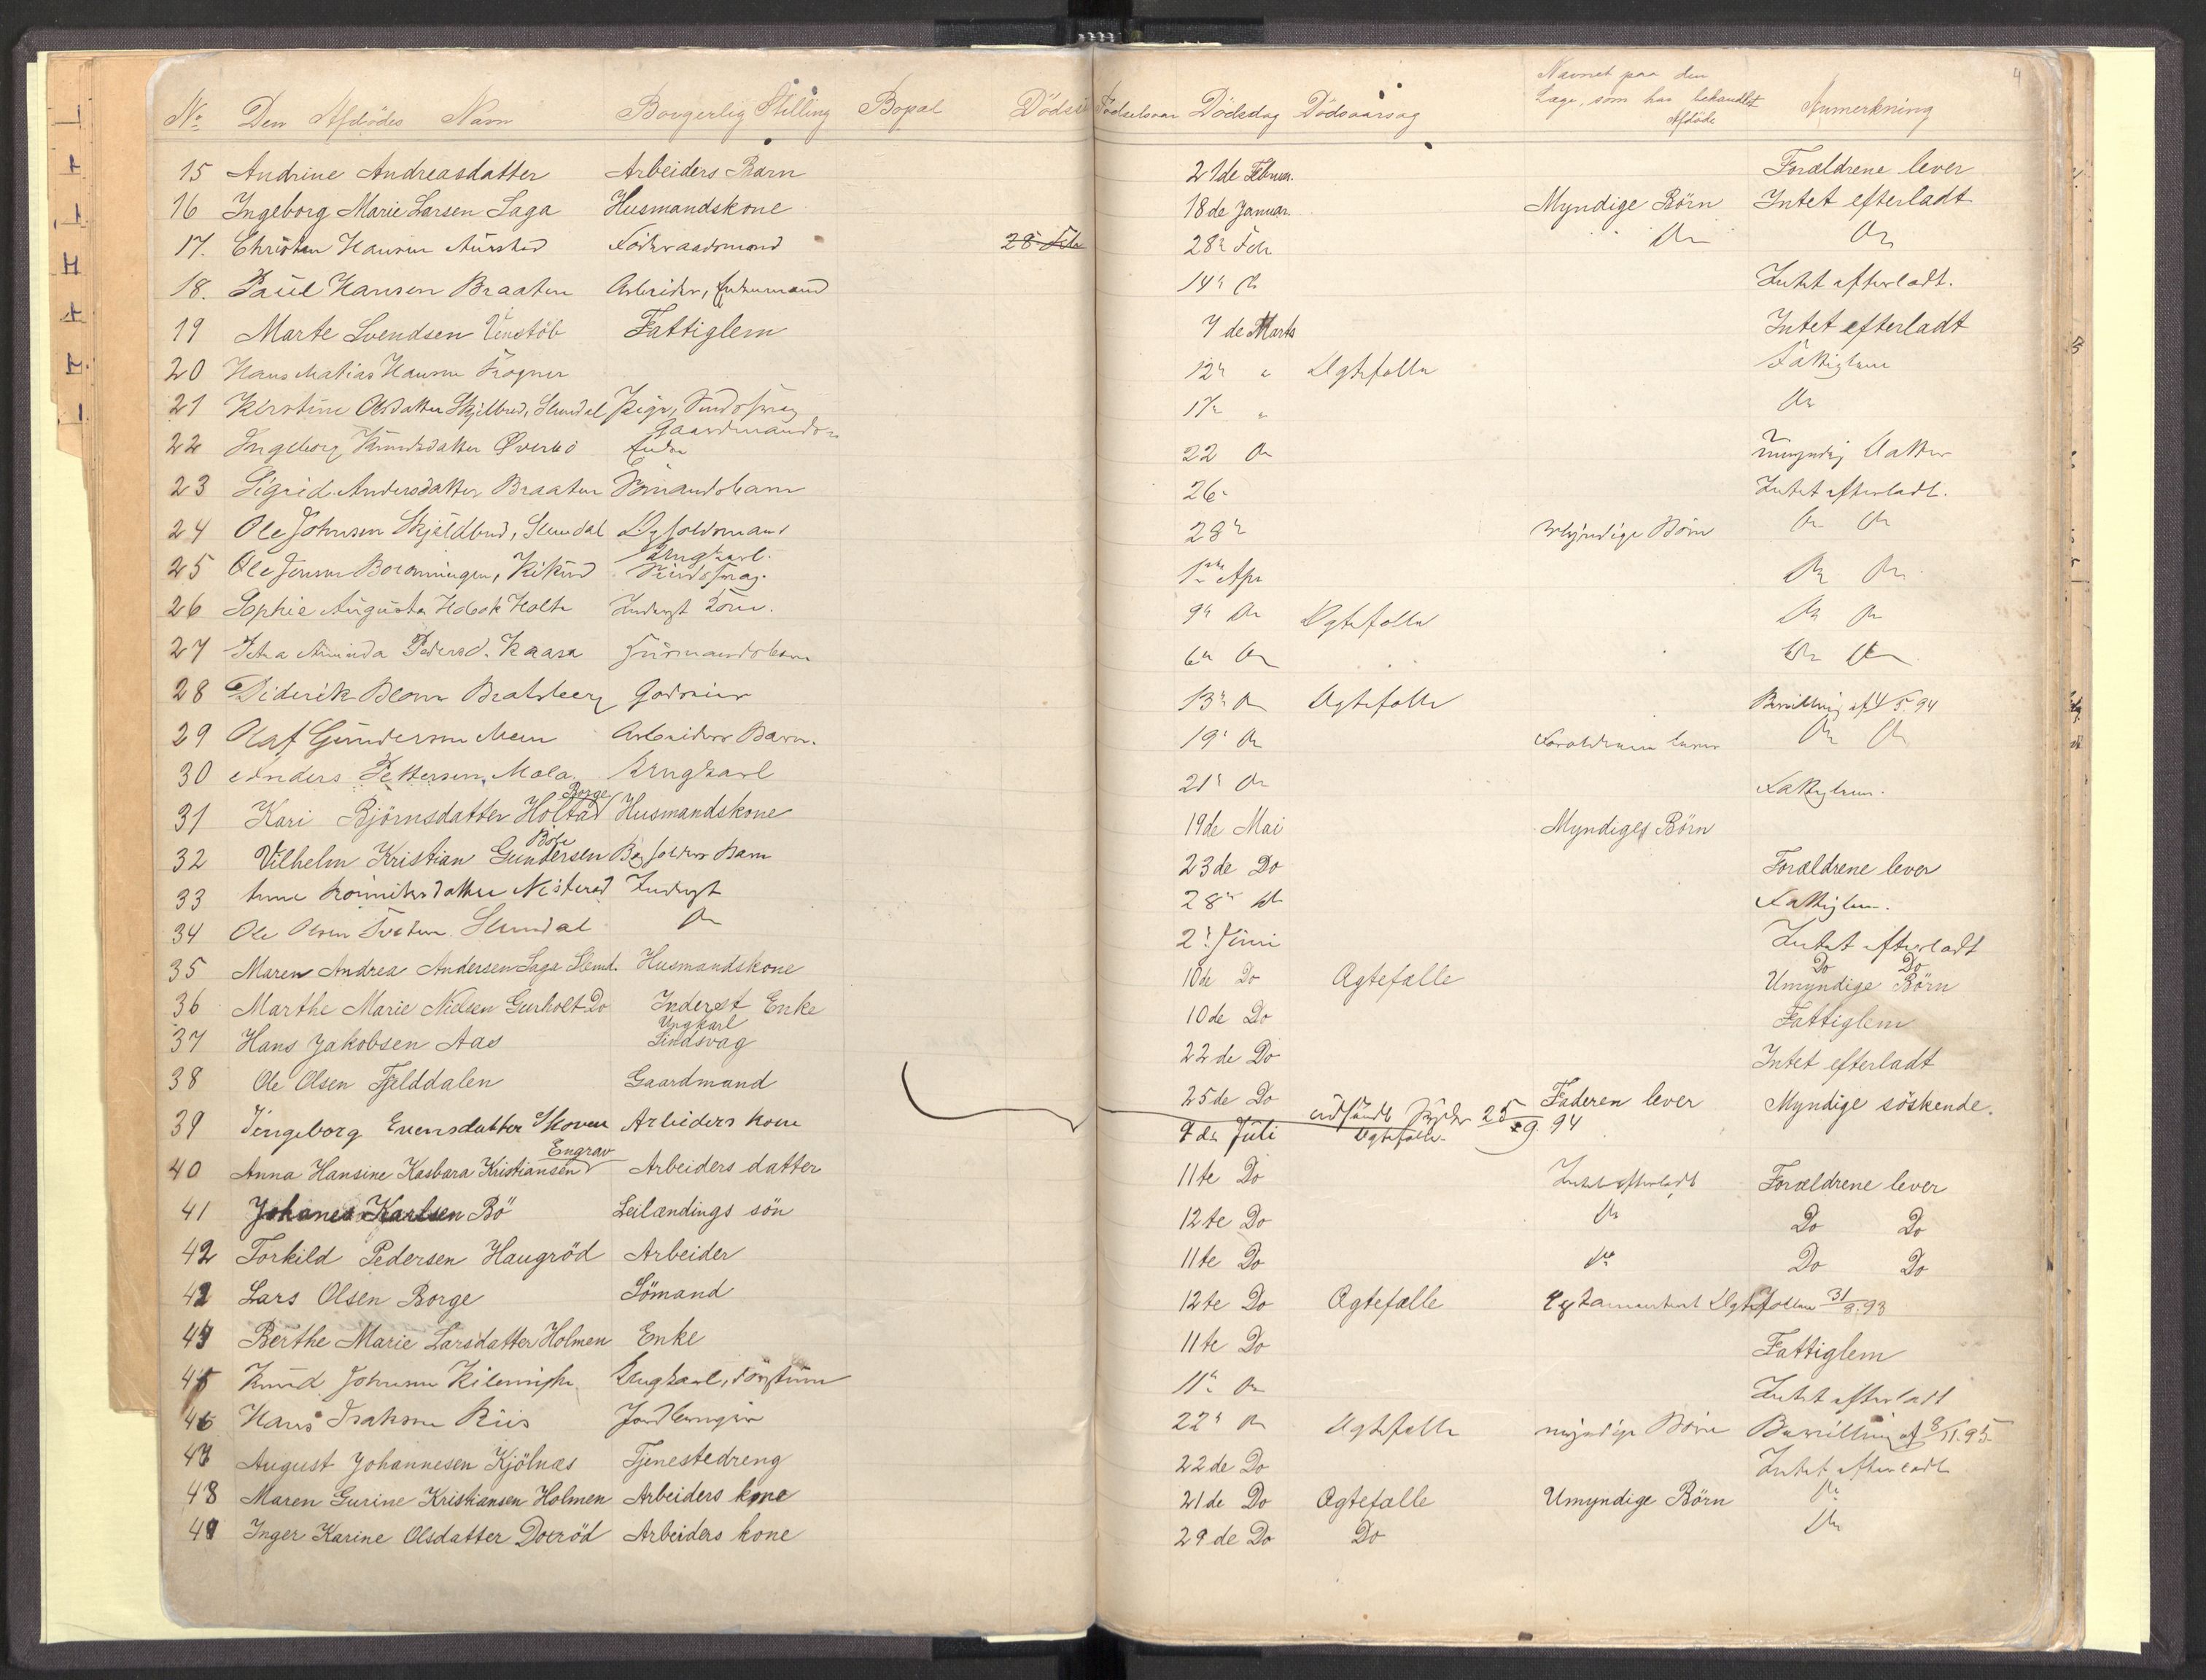 4
No. Den Afdödes Navn Borgerlig Stilling Bopæl Födselsaar Dödsdag Dödsaarsag Navnet paa den Læge, som har behandlet Afdöde Anmerkning
15 Andrine Andreasdatter Arbeiders Barn 21de Februar. Forældrene lever
16 Ingeborg Marie Larsen Saga Husmandskone 18de Januar. Myndige Börn Intet efterladt
17. Christen Hansen Föderaadsmand 28 Feb 28 Feb Do Do
18. Paul Hansen Braaten Arbeider, Enkemand 14 Do Intet efterladt.
19 Marte Svendsen Venstöb Fattiglem 7de Marts Intet efterladt
20 Hans Matias Hansen Fogner 12 " Ægtefælle Fattiglem
21 Kirstine Olsdatter Skjelbred, Slemdal Pige, Sindssvag 17 " Do
22 Ingeborg Knudsdatter Øverbö Gaardmands Enke 22 Do Umyndig Datter
23 Sigrid Andersdatter Braaten Sömandsbarn 26 Intet efterladt.
24 Ole Johnsen Skjeldbred, Slemdal 28 Myndige Börn Do Do
25 Ole Jensen Ungkarl Sindssvag. 1ste Apr Do Do
26 Sophie Augusta Holte Inderst Kone. 9 Do Ægtefælle Do Do
27 Petra Pedersd. Kaasa Husmandsbarn 6te Do Do Do
28 Diderik Blom Bratsberg Godseier 13 Do Ægtefælle Bevilling af 4/5 94
29 Olaf Gundersen Meen Arbeiders Barn. 19 Do Forældrene lever Do Do
30 Anders Pettersen, Mæla Ungkarl 21 Do Fattiglem.
31 Kari Björnsdatter Holtad Borge Husmandskone 19de Mai Myndige Börn
32 Vilhelm Kristian Gundersen Böle Barn 23de Do Forældrene lever
33 Inderst 28 Do Fattiglem.
34 Ole Olsen Slemdal Do 2 Juni Intet efterladt
35 Maren Andrea Andersen Saga Slemd. Husmandskone 10de Do Ægtefælle Do Do Umyndige Börn
36 Marthe Marie Nielsen Gurholt Do Inderst Enke 10de Do Fattiglem
37 Hans Jakobsen Aas Ungkarl Sindsvag 22de Do Intet efterladt
38 Ole Olsen Fjelddalen Gaardmand 25de Do Faderen lever Myndige söskende.
39 Ingeborg Evensdatter Skoven Arbeiders kone 9de Juli Ægtefælle 25/9. 94
40 Anna Hansine Kasbara Kristiansen Engrav Arbeiders datter 11te Do Intet efterladt Forældrene lever
41 Johanes Karlsen Bö Leilændings sön 12te Do Do Do Do
42 Torkild Pedersen Haugröd Arbeider 11te Do Do Do Do
42 Lars Olsen Borge Sömand 12te Do Ægtefælle Ægtefællen 31/8. 93
43 Berthe Marie Larsdatter Holmen Enke 11te Do Fattiglem
45 Knud Johnsen Ungkarl, 11 Do Intet efterladt
46 Hans Isaksen Riis Jordbruger 22 Do Ægtefælle myndige Börn Bevilling af 8/11. 95
47 August Johannesen Kjölnæs Tjenestedreng 22de Do Intet efterladt
48 Maren Gurine Kristiansen Holmen Arbeiders kone 21de Do Ægtefælle Umyndige Börn Do
49 Inger Karine Olsdatter Doeröd Arbeiders kone 29de Do Do Do